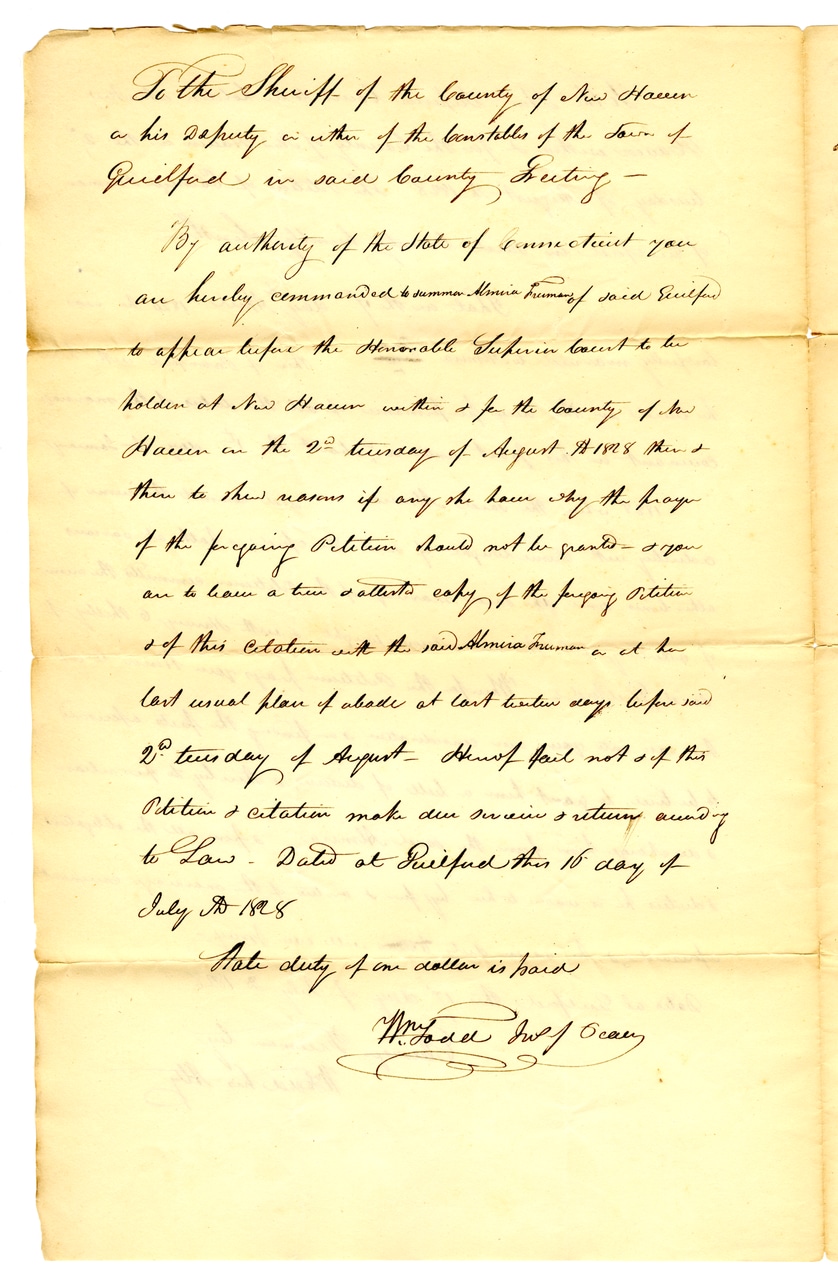 To the Sheriff of the County of New Haven
or his Deputy or either of the Constables of the Town of
Guilford in said County Greeting —
By authority of the State of Connecticut you
are hereby commanded to summon Almira Freeman of said Guilford
to appear before the Honorable Superior Court to be
holden at New Haven within & for the County of New
Haven on the 2d tuesday of August AD 1828 then &
there to shew reasons if any she have why the prayer
of the foregoing Petition should not be granted — & you
are to leave a true & attested copy of the foregoing Petition
& of this citation with the said Almira Freeman or at her
last usual place of abode at least twelve days before said
2d tuesday of August — Hereof fail not & of this
Petition & citation make due service & return according
to Law - Dated at Guilford this 16 day of
July AD 1828
State duty of one dollar is paid
Wm Todd Jus of Peace